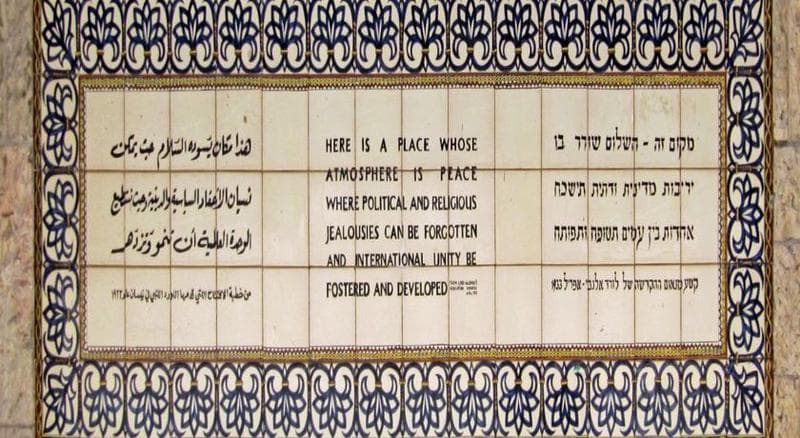 هذا مكان يسوده السلام حيث يمكن
نسيان الأحقاد السياسية والدينية وحيث تستطيع
الوحدة العالمية أن تنمو وتزدهر
من خطبة الافتتاح التي قدمها اللورد اللنبي في نيسان عام ١٩٣٣
HERE IS A PLACE WHOSE
ATMOSPHERE IS PEACE
WHERE POLITICAL AND RELIGIOUS
JEALOUSIES CAN BE FORGOTTEN
AND INTERNATIONAL UNITY BE
FOSTERED AND DEVELOPED
מקום זה - השלום שורר בו
יריבות מדינית ודתית תישכח
אחדות בין עמים תטופח ותפותח
קטע מנאום ההקדשה של לורד אלנבי - אפריל 1933